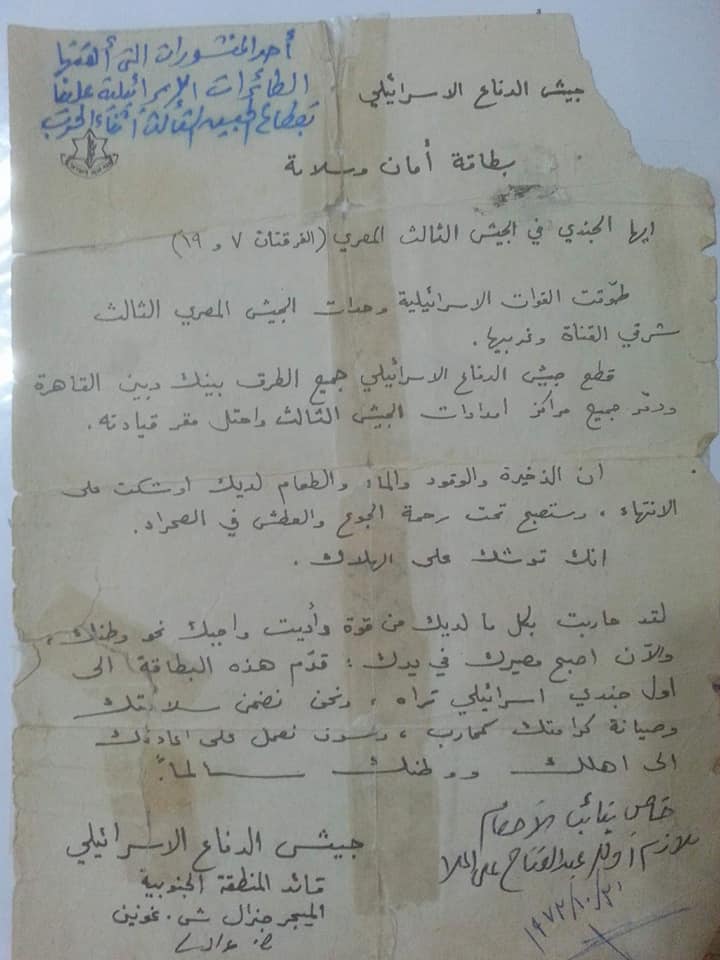 أحد المنشورات التى ألقتها
الطائرات الإسرائيلية علينا
بقطاع الجيش الثالث أثناء الحرب
جيش الدفاع الاسرائيلي
بطاقة أمان وسلامة
ايها الجندي في الجيش الثالث المصري (الفرقتان ٧ و ١٩)
طوّقت القوات الاسرائيلية وحدات الجيش المصري الثالث
شرقي القناة وغربيها.
قطع جيش الدفاع الاسرائيلي جميع الطرق بينك وبين القاهرة
ودمّر جميع مراكز امدادات الجيش الثالث واحتل مقر قيادته.
ان الذخيرة والوقود والماء والطعام لديك اوشكت على
الانتهاء، وستصبح تحت رحمة الجوع والعطش في الصحراء.
انك توشك على الهلاك.
لقد حاربت بكل ما لديك من قوة وأديت واجبك نحو وطنك،
والآن اصبح مصيرك في يدك: قدّم هذه البطاقة الى
اول جندي اسرائيلي تراه، ونحن نضمن سلامتك
وصيانة كرامتك كمحارب، وسوف نعمل على اعادتك
الى اهلك ووطنك سالماً.
جيش الدفاع الاسرائيلي
قائد المنطقة الجنوبية
الميجر جنرال ش. غونين
خاص بنائب الأحكام
ملازم أول عبدالفتاح على الملا
١٩٧٣/١٠/٢١